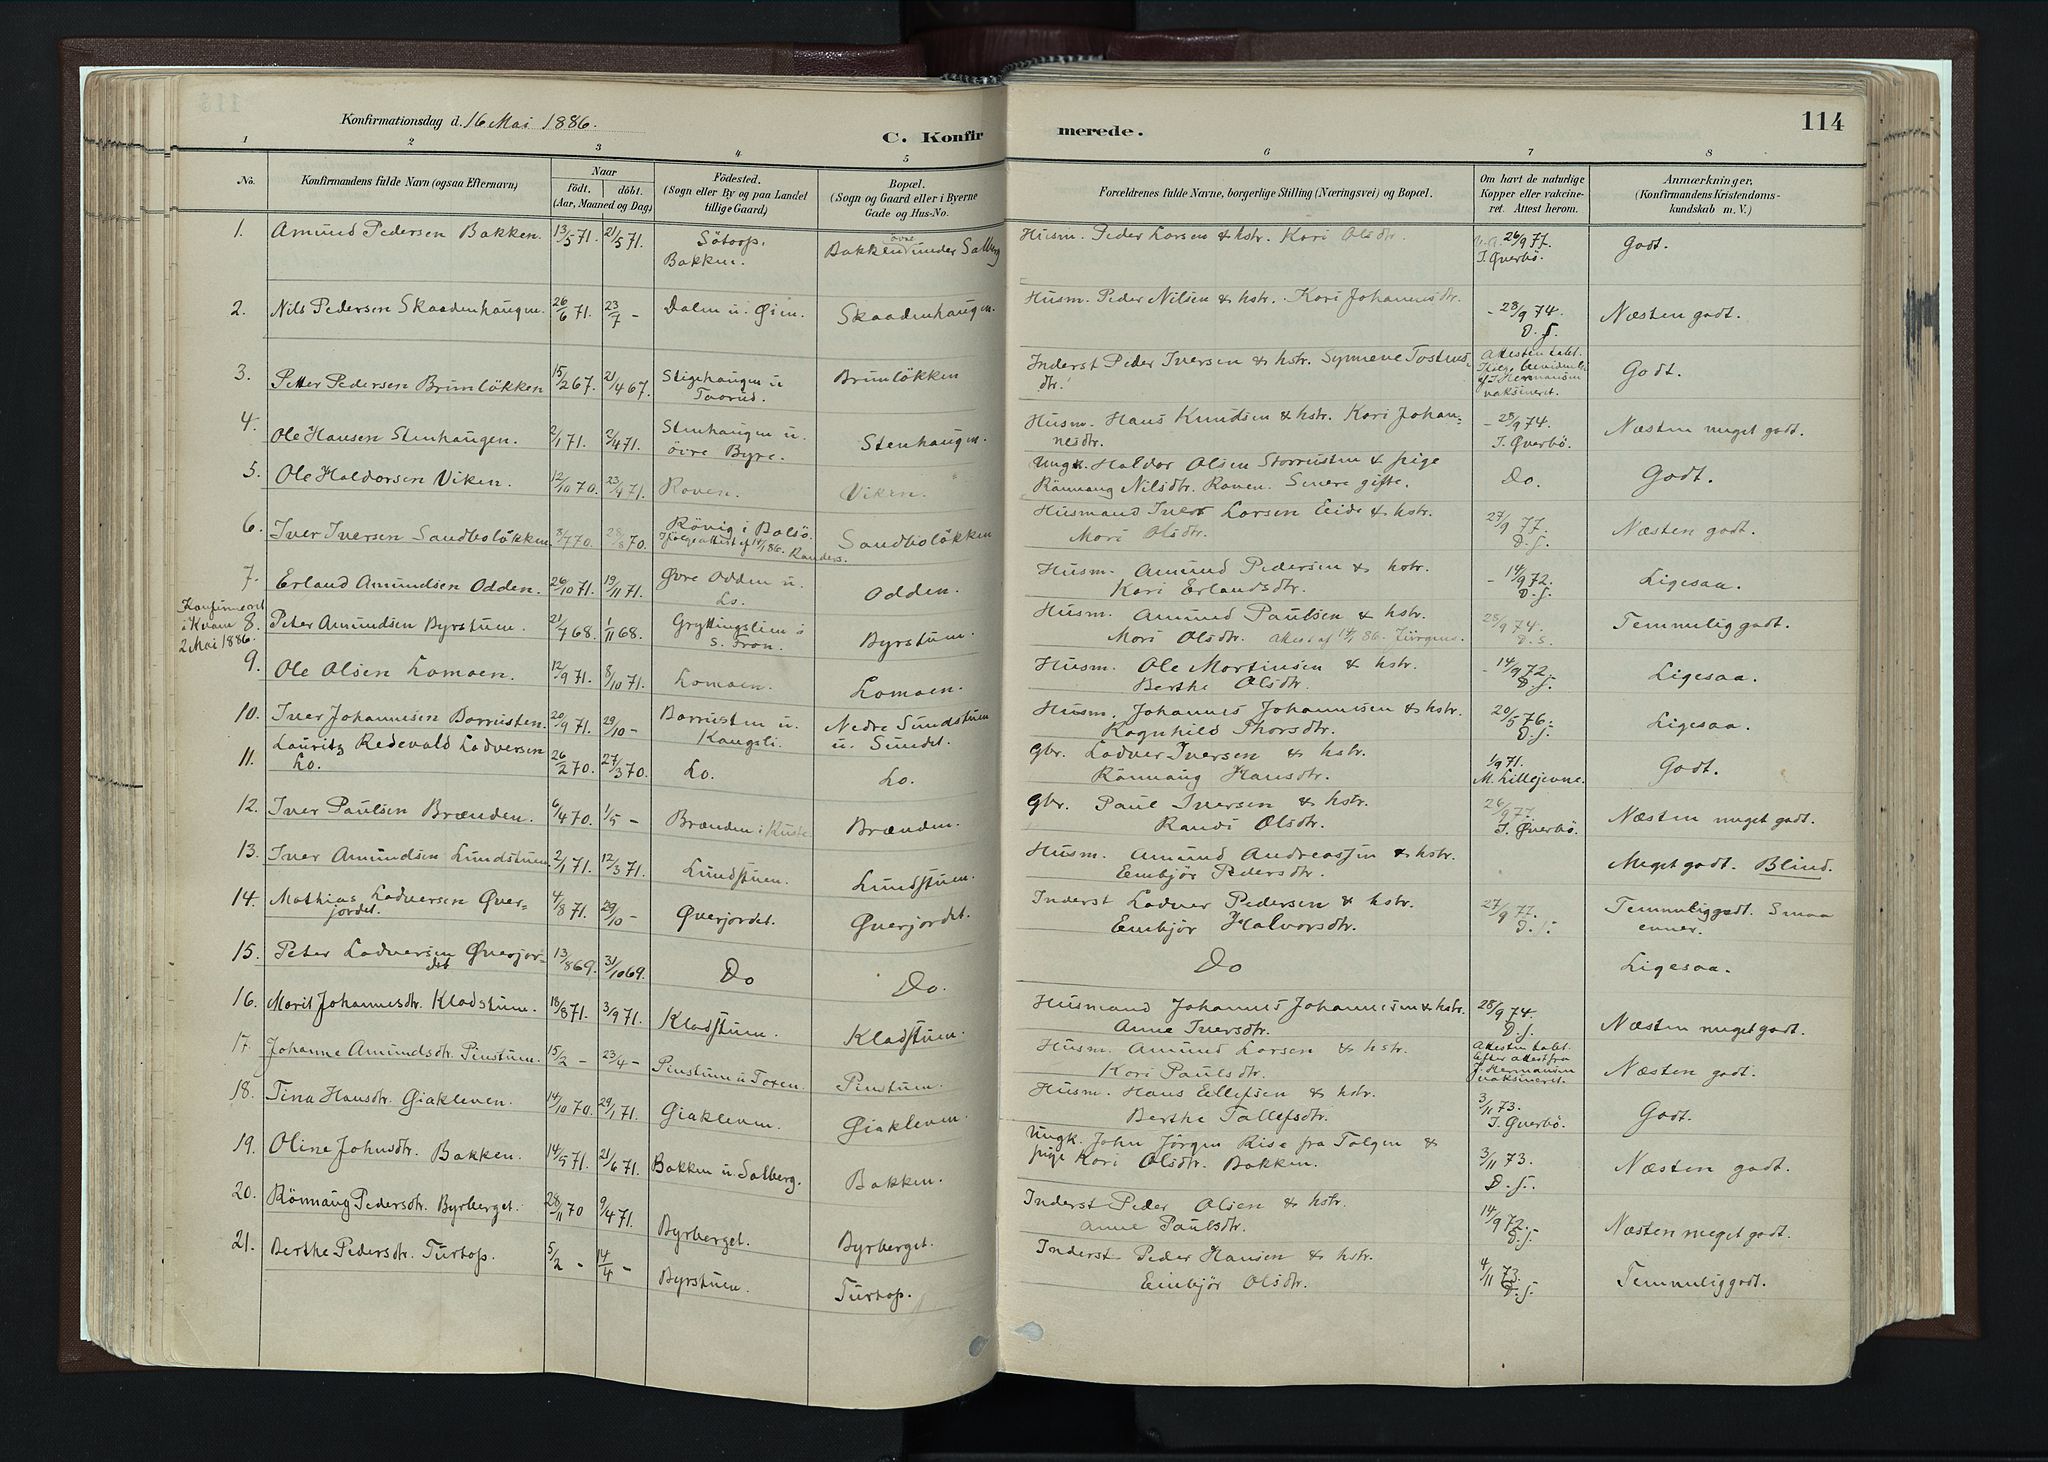 114
Konfirmationsdag d. 16 Mai 1886.
C. Konfirmerede.
1 2 3 4 5 6 7 8
No.
Konfirmandens fulde Navn (ogsaa Efternavn)
Naar
født. døbt.
(Aar, Maaned og Dag)
Fødested.
(Sogn eller By og paa Landet
tillige Gaard)
Bopæl.
(Sogn og Gaard eller i Byerne
Gade og Hus-No.
Forældrenes fulde Navne, borgerlige Stilling (Næringsvei) og Bopæl.
Om havt de naturlige
Kopper eller vakcine-
ret. Attest herom.
Anmærkninger,
(Konfirmandens Kristendoms-
kundskab m. V.)
1. Amund Pedersen Bakken. 13/5 71. 21/5 71. Sötorp. Bakken. Bakken øvre under Solberg Husm. Peder Larsen & hstr. Kari Olsdtr. 26/9 77. I. Øverbö. Godt.
2. Nils Pedersen Skaadenhaugen. 26/6 71. 23/7 - Dalen u. Öien. Skaadenhaugen. Husm. Peder Nilsen & hstr. Kari Johannesdtr. - 28/9 74. D. S. Næsten godt.
3. Petter Pedersen Brunlökken 15/2 67. 21/4 67. Stigehaugen u Brunlökken Inderst Peder Iversen & hstr. Synneve Tostens
dtr. Attesten tabt. I. Hermansen vaksineret. Godt.
4. Ole Hansen Stenhaugen. 2/1 71. 2/4 71. Stenhaugen u. övre Byre. Stenhaugen. Husm. Hans Knudsen & hstr. Kari Johan-
nesdtr. - 28/9 74. I. Øverbö. Næsten meget godt.
5. Ole Haldorsen Viken. 12/10 70. 23/4 71. Roven. Viken. Ungk. Haldor Olsen Storrusten & pige
Rönnaug Nilsdtr. Roven. Senere gifte. Do. Godt.
6. Iver Iversen Sandbolökken 3/7 70. 28/8 70. Rövig i Bolsö. Ifölge attest af 14/1 86. Sandbolökken Husmand Iver Larsen Eide & hstr.
Mari Olsdtr. 27/9 77. D. S. Næsten godt.
7. Erland Amundsen Odden. 26/10 71. 19/11 71. Øvre Odden u. Lo. Odden. Husm. Amund Pedersen & hstr.
Kari Erlandsdtr. - 14/9 72. D. S. Ligesaa.
Konfirmeret
i Kvam
2 Mai 1886.
8. Peter Amundsen Byrstuen. 21/7 68. 1/11 68. Gryttingslien i S. Fron. Byrstuen. Husm. Amund Paulsen & hstr.
Mari Olsdtr. Attest af 14/1 86. 28/9 74. D. S. Temmelig godt.
9. Ole Olsen Lomoen. 12/9 71. 8/10 71. Lomoen. Lomoen. Husm. Ole Mortinsen & hstr.
Berthe Olsdtr. - 14/9 72. D. S. Ligesaa.
10. Iver Johannesen Borrusten. 20/9 71. 29/10 - Borrusten u. Kongsli. Nedre Sundstuen u. Sundet. Husm. Johannes Johannesen & hstr.
Ragnhild Thorsdtr. 20/5 76. D. S. Ligesaa.
11. Lauritz Redevald Ladversen
Lo. 26/2 70. 27/3 70. Lo. Lo. Gbr. Ladver Iversen & hstr.
Rönnaug Hansdtr. 1/9 71. M. Lillejevne. Godt.
12. Iver Paulsen Brænden. 6/4 70. 1/5 - Brænden i Kuste Brænden. Gbr. Paul Iversen & hstr.
Randi Olsdtr. 26/9 77. I. Øverbö. Næsten meget godt.
13. Iver Amundsen Lundstuen. 2/1 71. 12/3 71. Lundstuen. Lundstuen. Husm. Amund Andreassen & hstr.
Embjör Pedersdtr. Meget godt. Blind.
14. Mathias Ladversen Øver-
jordet. 4/8 71. 29/10 - Øverjordet. Øverjordet. Inderst Ladver Pedersen & hstr.
Embjör Halvorsdtr. 27/9 77. D. S. Temmelig godt. Smaa
evner.
15. Peter Ladversen Øverjor-
det 13/8 69. 31/10 69. Do Do. Do Ligesaa.
16. Marit Johannesdtr. Kladstuen. 18/8 71. 3/9 71. Kladstuen. Kladstuen. Husmand Johannes Johannesen & hstr.
Anne Iversdtr. 28/9 74. D. S. Næsten meget godt.
17. Johanne Amundsdtr. Pinstuen. 15/2 - 23/4 - Pinstuen u Toxen. Pinstuen. Husm. Amund Larsen & hstr.
Kari Paulsdtr. Attesten tabt. Efter attest fra J. Hermansen vaksineret. Næsten godt.
18. Tina Hansdtr. Giakleven. 14/10 70. 29/1 71. Giakleven. Giakleven. Husm. Hans Ellefsen & hstr.
Berthe Tallefsdtr. 3/11 73. I. Øverbö. Godt.
19. Oline Johnsdtr. Bakken. 14/5 71. 21/6 71. Bakken u. Solberg. Bakken. Ungk. John Jörgen Rise fra Tolgen &
pige Kari Olsdtr. Bakken. 3/11 73. D. S. Næsten godt.
20. Rönnaug Pedersdtr. Byrberget. 28/11 70 9/4 71. Byrberget. Byrberget. Inderst Peder Olsen & hstr.
Anne Paulsdtr. 14/9 72. D. S. Næsten meget godt.
21. Berthe Pedersdtr. Turtop. 5/2 - 14/4 - Byrstuen. Turtop. Inderst Peder Hansen & hstr.
Embjör Olsdtr. 4/11 73. D. S. Temmelig godt.